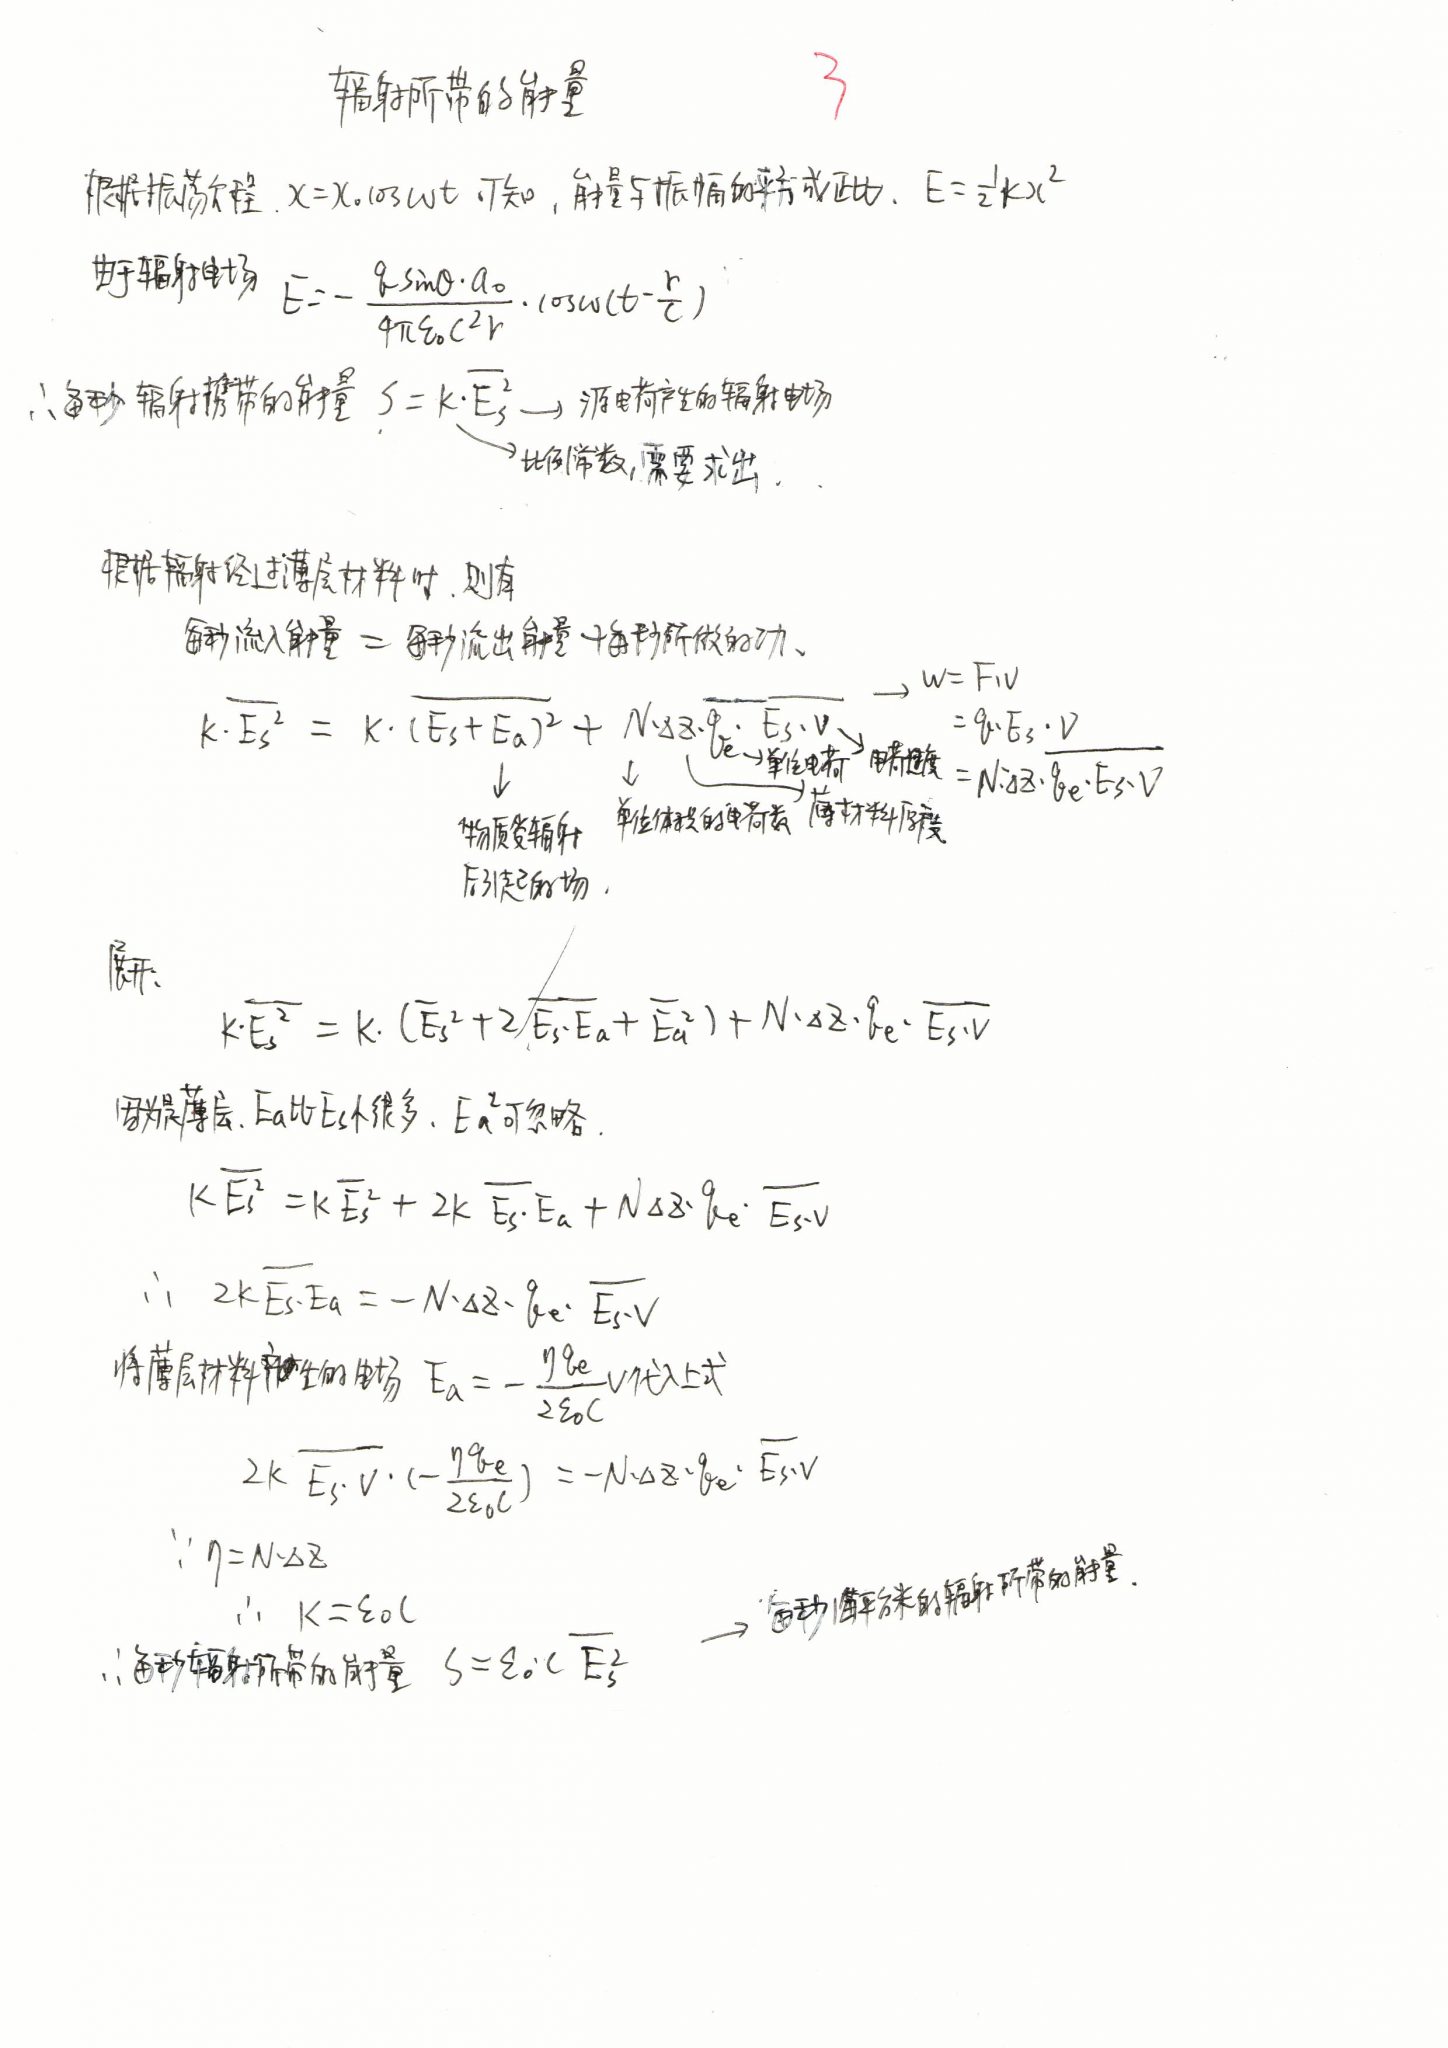 辐射所带的能量 3
根据振荡方程. x=x₀cosωt 可知, 能量与振幅的平方成正比. E=½kx²
由于辐射电场 E=-\frac{q sinθ·a₀}{4πε₀c²r}·cosω(t-\frac{r}{c})
∴每秒辐射携带的能量 S=k·\overline{E_s²} → 源电荷产生的辐射电场
→比例常数, 需要求出.
根据辐射经过薄层材料时. 则有
每秒流入能量 = 每秒流出能量+每秒所做的功、
k·\overline{E_s²} = k·\overline{(E_s+E_a)²} + N·Δz·\overline{q_e·E_s·v} → W=F·V
=q·E_s·V
→单位电荷 电荷速度 =\overline{N·Δz·q_e·E_s·V}
物质受辐射 单位体积的电荷数 薄材料厚度
后引起的场.
展开:
k·\overline{E_s²} = k·(\overline{E_s}²+2\overline{E_s·E_a}+\overline{E_a}²)+N·Δz·q_e·\overline{E_s·V}
因为是薄层、E_a比E_s小很多、E_a²可忽略.
k\overline{E_s²}=k\overline{E_s}²+2k\overline{E_s·E_a}+NΔz·q_e·\overline{E_s·V}
∴ 2k\overline{E_s·E_a}=-N·Δz·q_e·\overline{E_s·V}
将薄层材料产生的电场 E_a=-\frac{ηq_e}{2ε₀c}V代入上式
2k\overline{E_s·V}·(-\frac{ηq_e}{2ε₀c})=-N·Δz·q_e·\overline{E_s·V}
∵ η=N·Δz
∴ k=ε₀c
∴每秒辐射所带的能量 S=ε₀·c\overline{E_s²} → 每秒每平方米的辐射所带的能量.